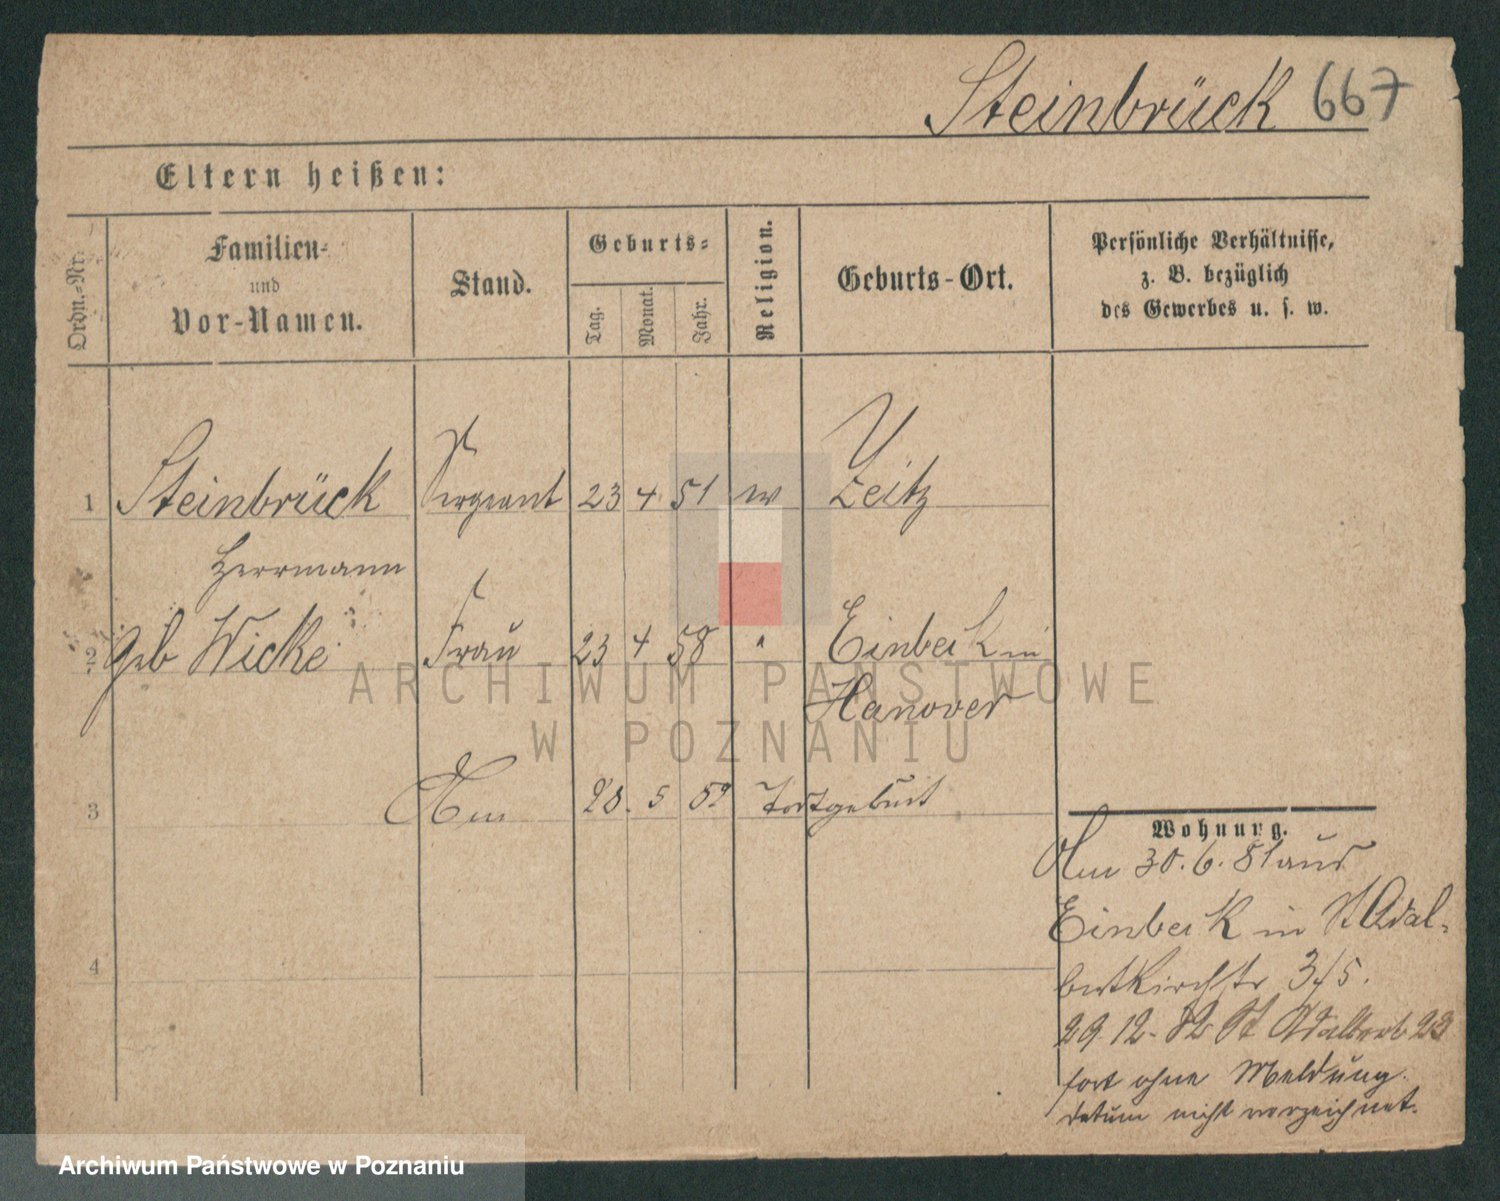 Steinbrück 667
Eltern heißen:
Ordn.-Nr.
Familien-
und
Vor-Namen.
Stand.
Geburts-
Tag.
Monat.
Jahr.
Religion.
Geburts-Ort.
Persönliche Verhältnisse,
z. B. bezüglich
des Gewerbes u. s. w.
1 Steinbrück Sergeant 23 4 51 Zeitz
Herrmann
2 geb Wicke Frau 23 4 58 " Einbeck in
Hanover
3 28. 5
4
Wohnung.
Am 30. 6. 81 aus
Einbeck in St Adal-
bertkirchstr 3/5.
29 12. 82 St Adalbert 23
fort ohne Meldung.
datum nicht verzeichnet.
ARCHIWUM PAŃSTWOWE
W POZNANIU
Archiwum Państwowe w Poznaniu